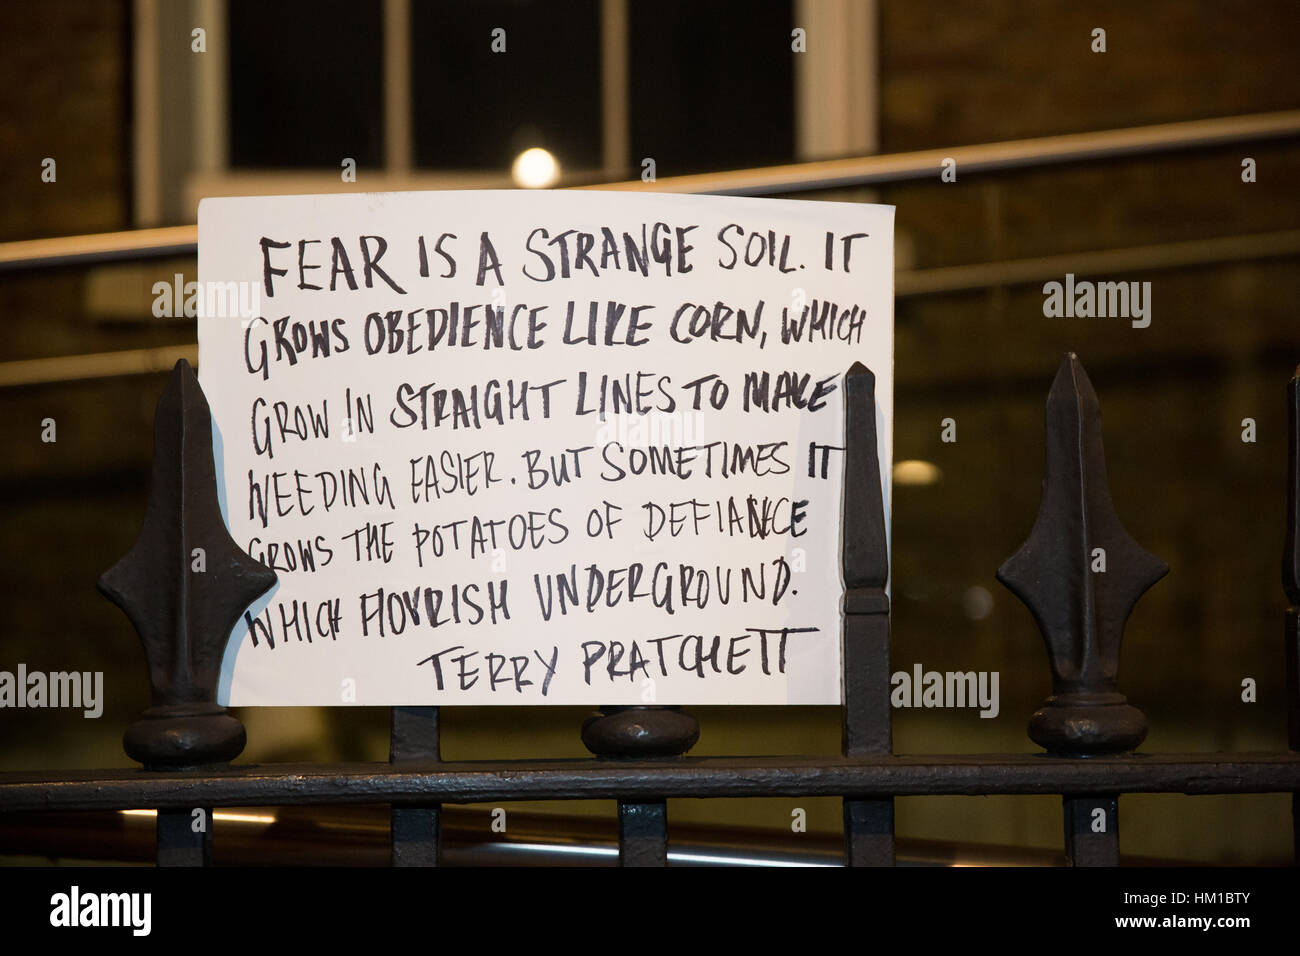 FEAR IS A STRANGE SOIL. IT
GROWS OBEDIENCE LIKE CORN, WHICH
GROW IN STRAIGHT LINES TO MAKE
WEEDING EASIER. BUT SOMETIMES IT
GROWS THE POTATOES OF DEFIANCE
WHICH FLOURISH UNDERGROUND.
TERRY PRATCHETT
alamy
alamy
alamy
alamy
a a a a a a a a
alamy
Image ID: HM1BTY
www.alamy.com